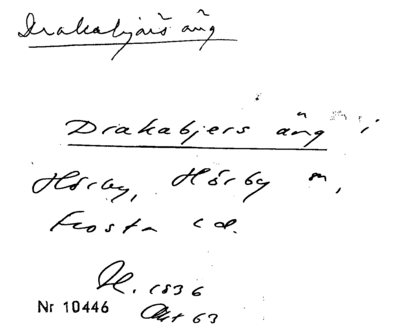 Drakabjärs äng
Drakabjers äng i
Hörby, Hörby sn,
Frosta hd.
H. 1836
Akt 63
Nr 10446